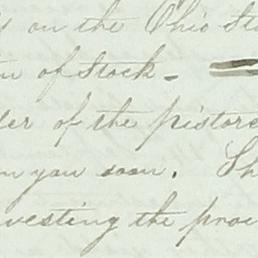 on the Ohio Sta
of Stock -
der of the pistore
n you soon. Sh
vesting the proc